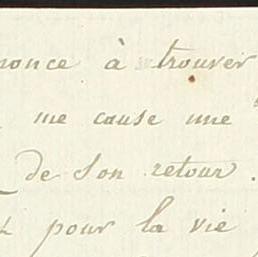 nonce à trouver
me cause une
de son retour.
pour la vie